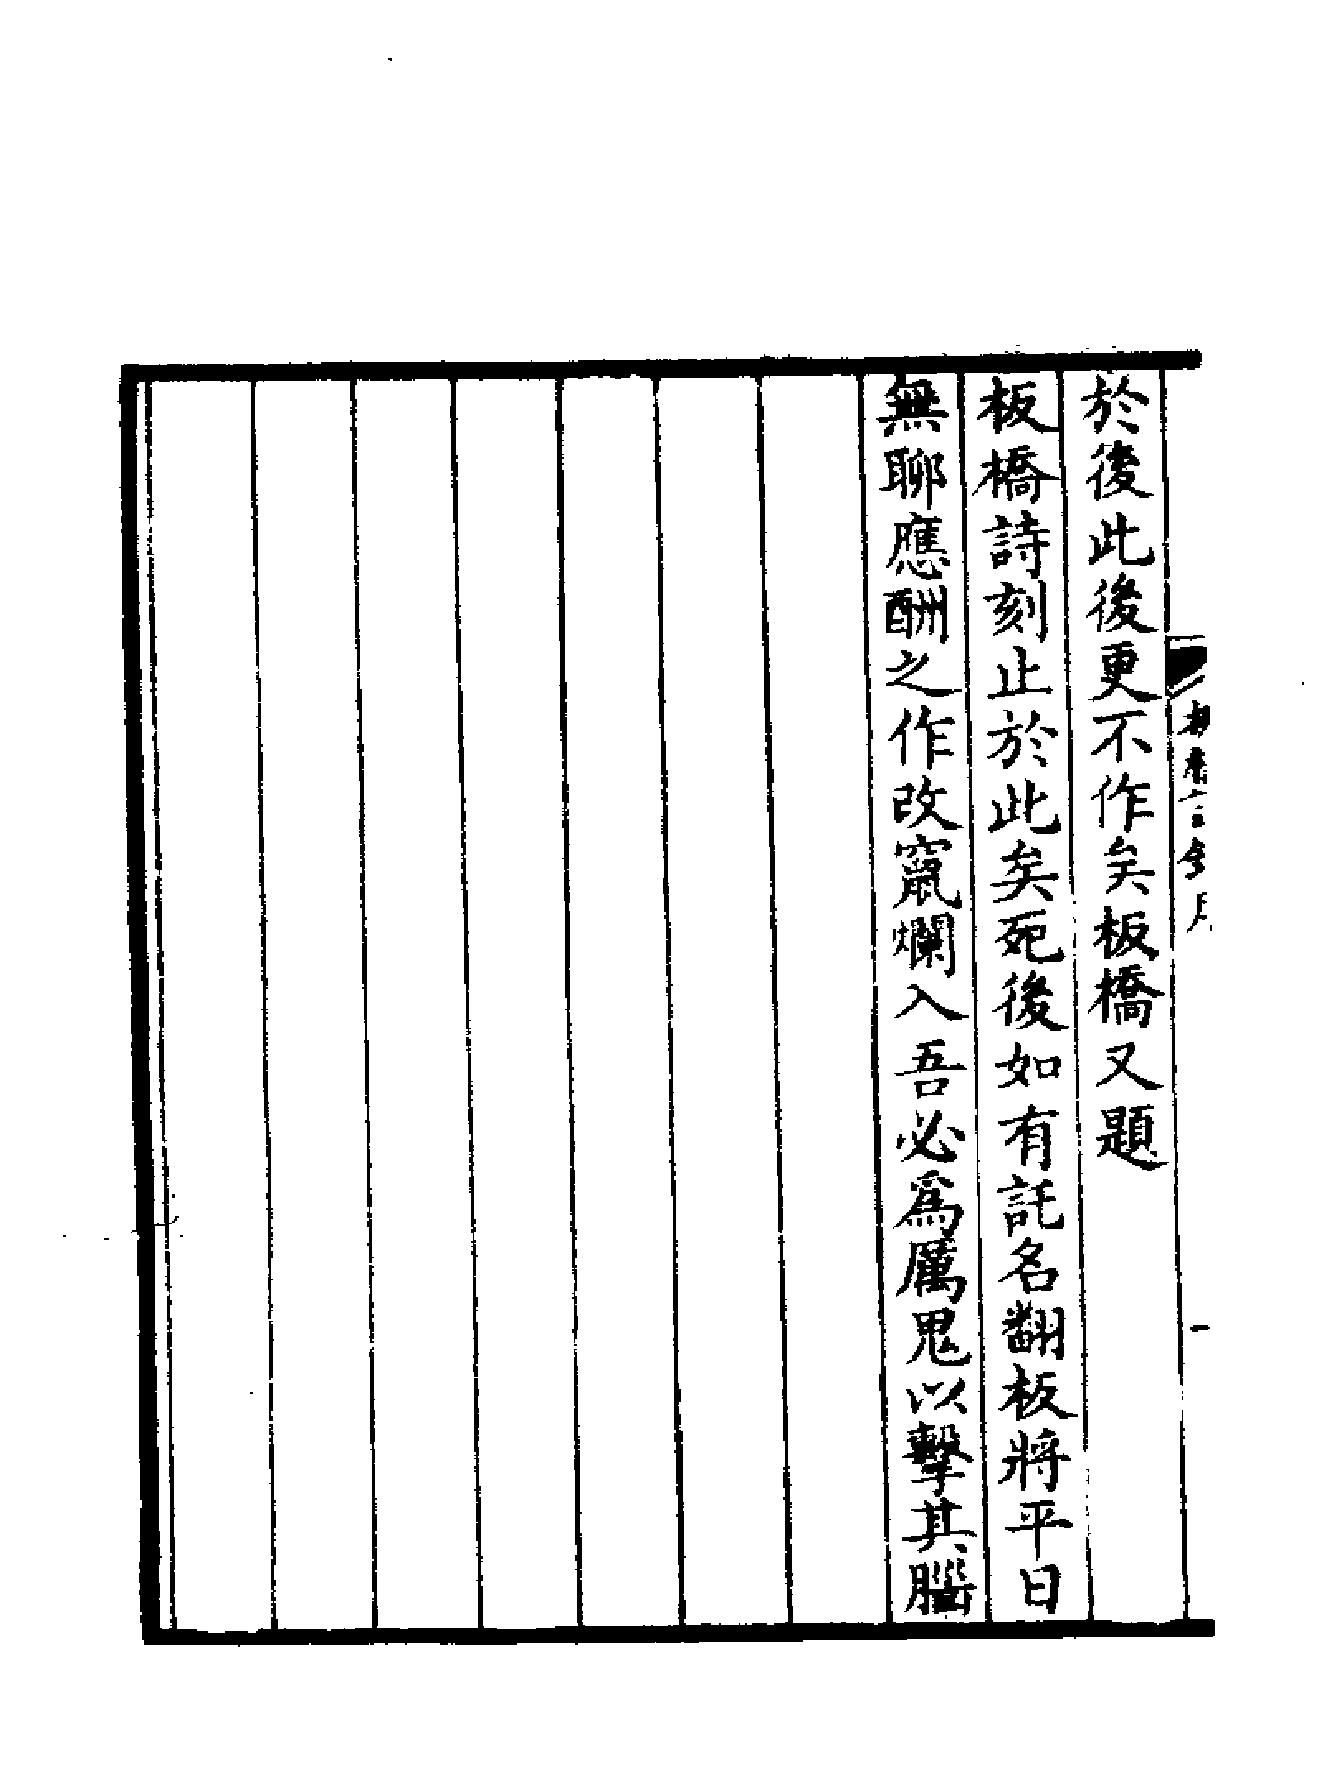 於後此後更不作矣板橋又題
板橋詩刻止於此矣死後如有託名翻板將平日
無聊應酬之作改竄爛入吾必爲厲鬼以擊其腦
一